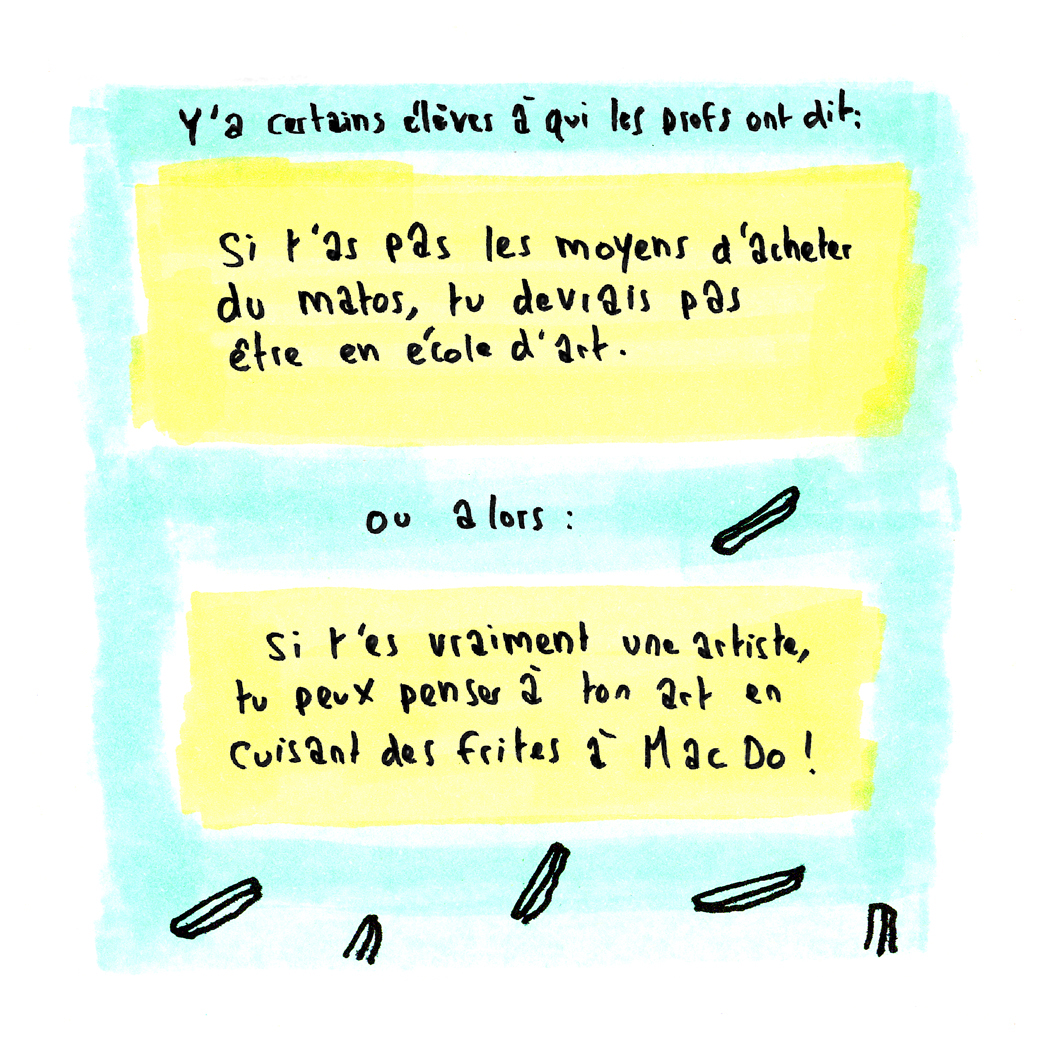 Y'a certains élèves à qui les profs ont dit:
Si t'as pas les moyens d'acheter
du matos, tu devrais pas
être en école d'art.
ou alors :
Si t'es vraiment une artiste,
tu peux penser à ton art en
cuisant des frites à Mac Do !